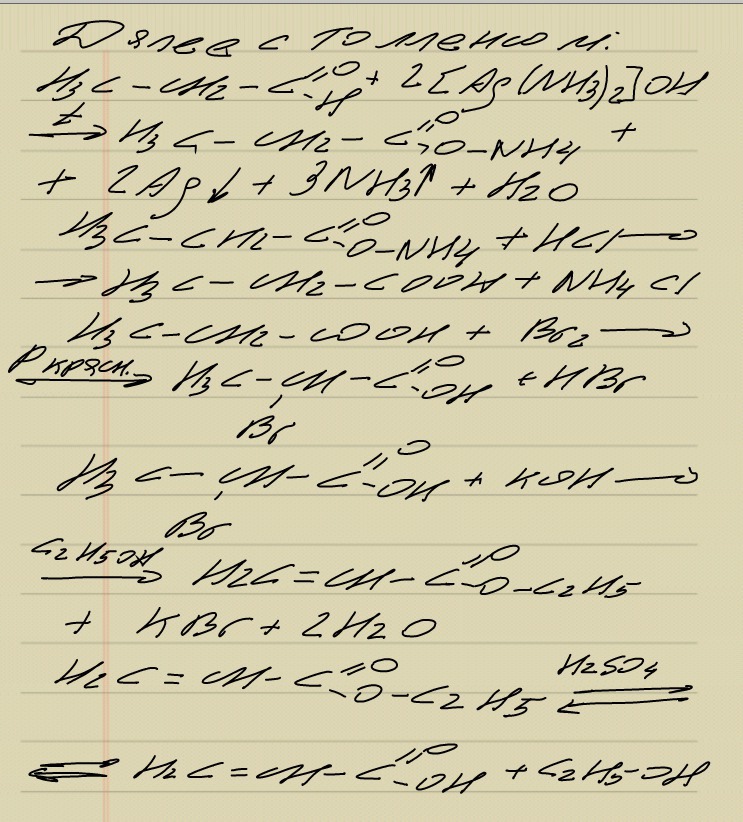 Далее с толменом:
H₃C – CH₂ – C(=O)–H + 2[Ag(NH₃)₂]OH
t→ H₃C – CH₂ – C(=O)–O–NH₄ +
+ 2Ag↓ + 3NH₃↑ + H₂O
H₃C – CH₂ – C(=O)–O–NH₄ + HCl →
→ H₃C – CH₂ – COOH + NH₄Cl
H₃C – CH₂ – COOH + Br₂ →
P красн.→ H₃C – CH – C(=O)–OH + HBr
Br
H₃C – CH – C(=O)–OH + KOH →
Br
C₂H₅OH→ H₂C = CH – C(=O)–O–C₂H₅
+ KBr + 2H₂O
H₂C = CH – C(=O)–O–C₂H₅ H₂SO₄ ⇄
⇄ H₂C = CH – C(=O)–OH + C₂H₅–OH